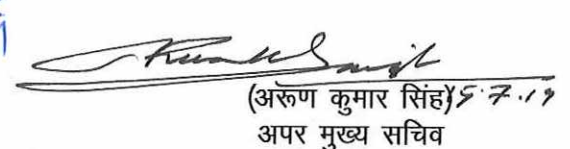 (अरूण कुमार सिंह) 5.7.19
अपर मुख्य सचिव